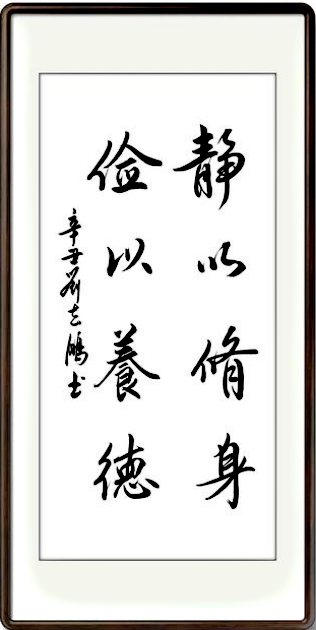 静以脩身
俭以養德
辛丑劉志鵬书